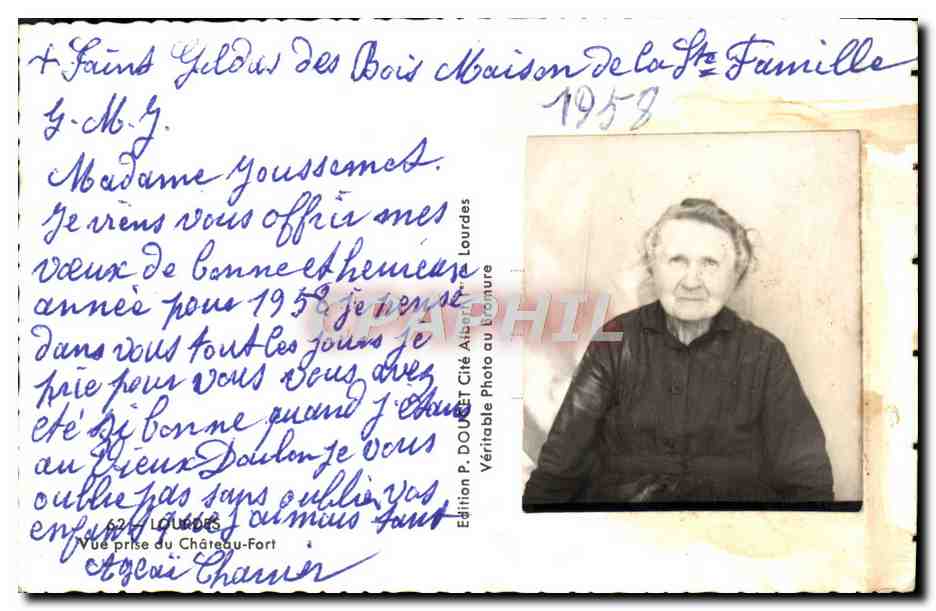 + Saint Gildas des Bois Maison de la Ste Famille
1958
G. M. J.
Madame Joussemet.
Je viens vous offrir mes
vœux de bonne et heureuse
année pour 1958 je pense
dans vous tout les jours je
prie pour vous vous avez
été si bonne quand j'étais
au Vieux Doulon je vous
oublie pas sans oublier vos
enfant que j'aimais tant
Charrier
62 - LOURDES
Vue prise du Château-Fort
Edition P. DOUCET Cité Albert 1er Lourdes
Véritable Photo au Bromure
CPAPHIL